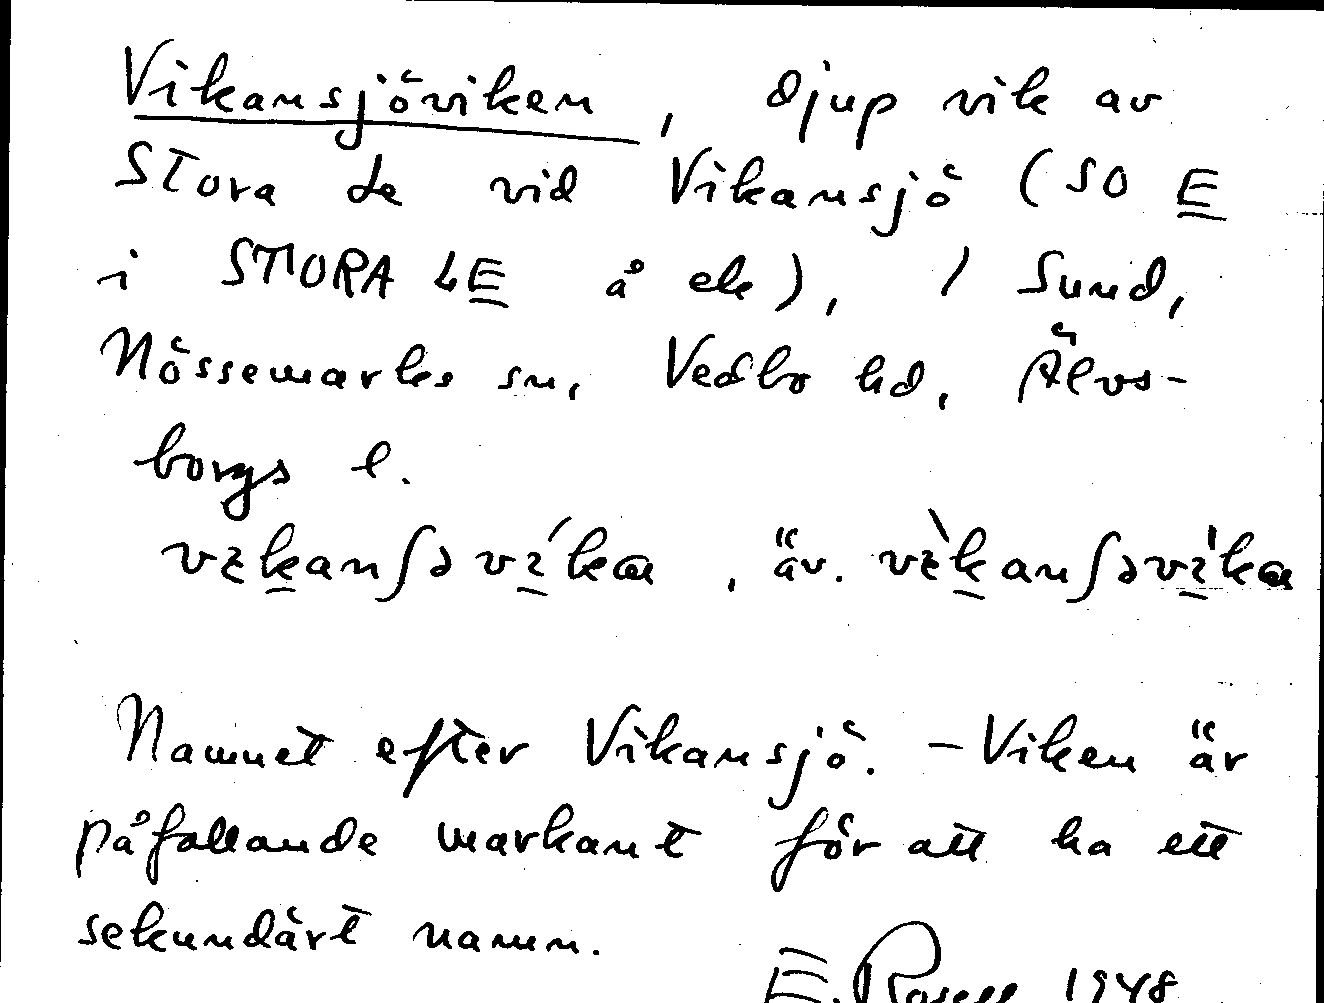 Vikansjöviken, djup vik av
Stora Le vid Vikansjö (SO E
i STORA LE å ek), / Sund,
Nössemarks sn, Vedbo hd, Älvs-
borgs l.
, äv.
Namnet efter Vikansjö. – Viken är
påfallande markant för att ha ett
sekundärt namn.
E. Rosell 1948